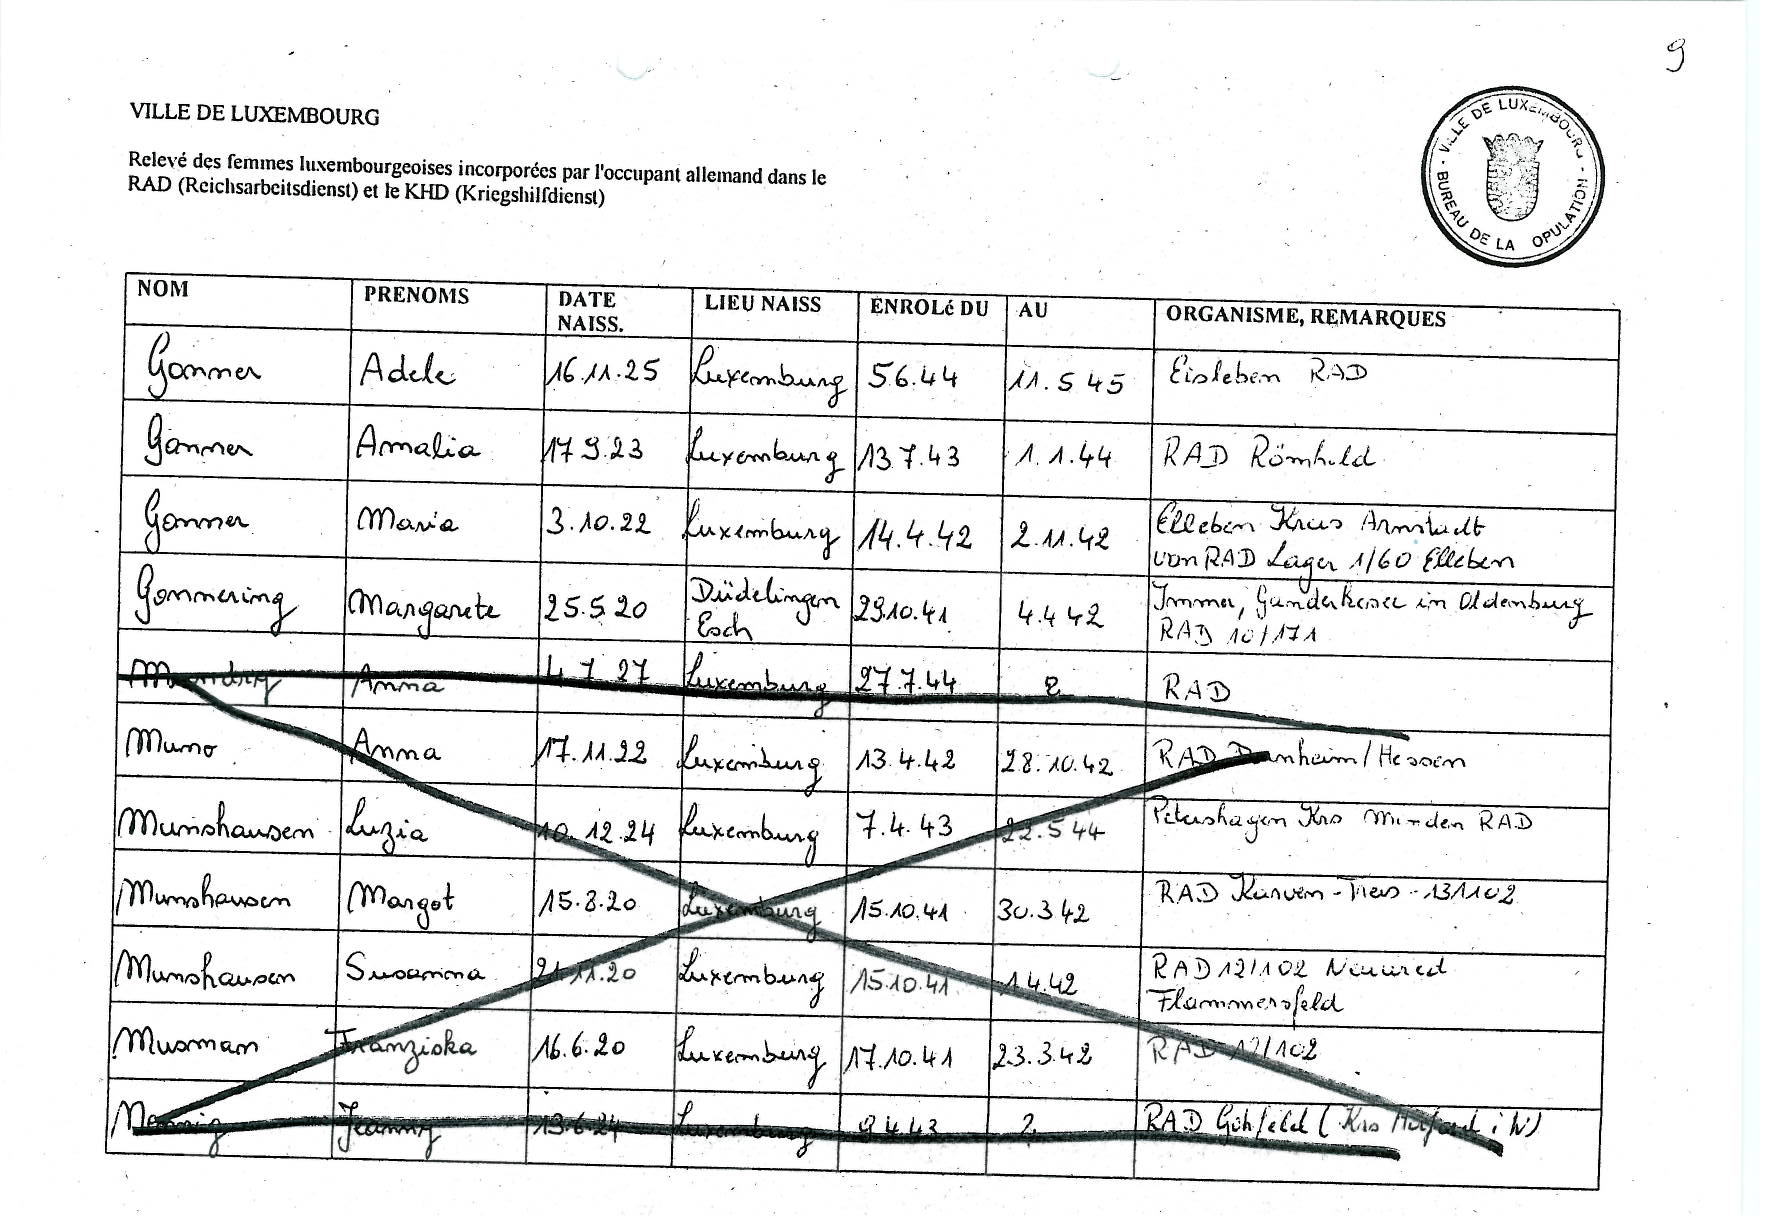 9
VILLE DE LUXEMBOURG
VILLE DE LUXEMBOURG - BUREAU DE LA OPULATION -
Relevé des femmes luxembourgeoises incorporées par l'occupant allemand dans le
RAD (Reichsarbeitsdienst) et le KHD (Kriegshilfdienst)
NOM PRENOMS DATE NAISS. LIEU NAISS ENROLé DU AU ORGANISME, REMARQUES
Gonner Adele 16.11.25 Luxemburg 5.6.44 11.5 45 Eisleben RAD
Gonner Amalia 17 9.23 Luxemburg 13.7.43 1.1.44 RAD Römhild
Gonner Maria 3.10.22 Luxemburg 14.4.42 2.11.42 Elleben Kreis Arnstadt
von RAD Lager 1/60 Elleben
Gonnering Margarete 25.5.20 Düdelingen 29.10.41 4.4 42 Immer, Ganderkesee in Oldenburg
Esch RAD 10/171
Anna 4 7.27 Luxemburg 27.7.44 RAD
Muno Anna 17.11.22 Luxemburg 13.4.42 28.10.42 RAD /Hessen
Munshausen Luzia 10.12.24 Luxemburg 7.4.43 22.5 44 Petershagen Krs Minden RAD
Munshausen Margot 15.8.20 Luxemburg 15.10.41 30.3 42 RAD 131102
Munshausen Susanna 21.11.20 Luxemburg 15.10.41 1 4.42 RAD 12/102 Neuwied
Flammersfeld
Musman Franziska 16.6.20 Luxemburg 17.10.41 23.3.42 RAD 12/102
Jeanny 13.6.24 Luxemburg 9 4.43 ? RAD Gohfeld (Krs Herford i W)